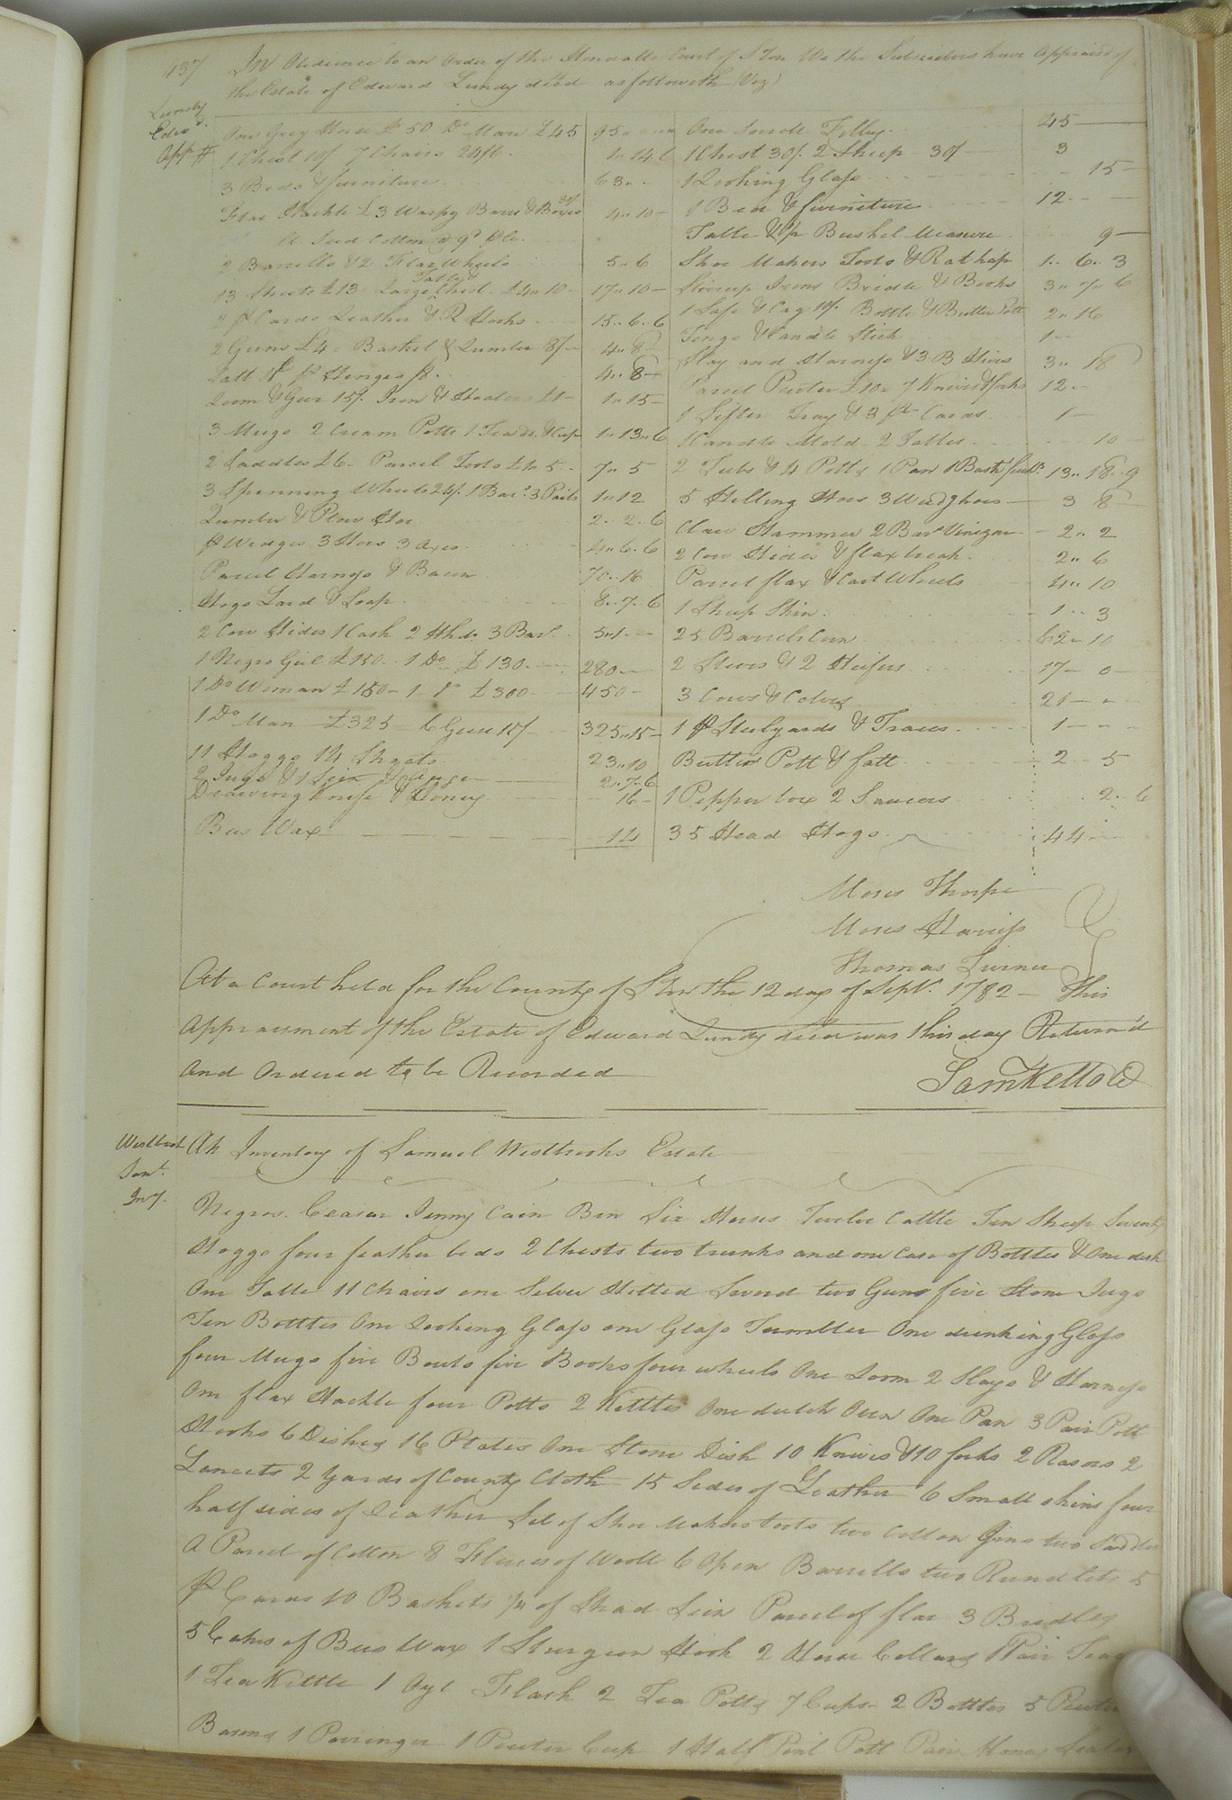 137
In Obedience to an Order of the Honorable Court of I Ton We the Subscribers have Appraised of
the Estate of Edward Lundy dec'd as followeth (Viz)
Lundy
Edw'd.
App mt
One Grey Horse £50 Do Mare £45 95
1 Chest 10/ 7 Chairs 24/6 1 14 6
3 Beds & furniture 63
Flax Hackle £3 Waspy Bows & Boxes 4 10
2 Barrells & 2 Flax Wheels 5 6
13 Sheets £13 Large Chest £4 10 17 10
2 pr Cards Leather & R Hooks 15 6 6
2 Guns £4 Basket & Lumber 8/ 4 8
4 8
Loom & Gear 15/ Iron & Heaters £1 1 15
3 Mugs 2 Cream Potts 1 1 13 6
2 Saddles £6 Parcel Tools £1 5 7 5
3 Spinning Wheels 24/ 1 Bar. 3 Pails 1 12
Lumber & Plow Hoe 2 2 6
pr Wedges 3 Hoes 3 Axes 4 6 6
Parcel Harness & Bacon 70 16
Hogs Lard & Soap 8 7 6
2 Cow Hides 1 Cask 2 Hhds 3 Bar. 5 1
1 Negro Girl £150 1 Do £130 280
1 Do Woman £150 1 Do £300 450
1 Do Man £325 6 Geese 15/ 325 15
11 Hoggs 14 Shoats 23 10
2 Jugs & 1 2 7 6
Drawing Knife & Honey 16
Bees Wax 14
One Sorrell Filley 45
1 Chest 30/ 2 Sheep 30/ 3
1 Looking Glass 15
1 Bed & furniture 12
Table & pr Bushel Measure 9
Shoe Makers Tools & Rat trap 1 6 3
Stirrup Irons Bridle & Books 3 7 6
1 Safe & Cag 10/ Bottle & Butter Pott 2 16
Tongs & Candle Stick 1
Slay and Harness & 3 B Hives 3 18
Parcel Pewter £10 7 Knives & forks 12
1 Sifter Tray & 3 pr Cards 1
Candle Mold 2 Tables 10
2 Tubs & 4 Potts 1 Pan 1 13 18 9
5 Hilling Hoes 3 Weed g hoes 3 8
Claw Hammer 2 Bar Vinegar 2 2
2 Cow Hides & flax break 2 6
Parcel flax & Cart Wheels 4 10
1 Sheep Skin 1 3
25 Barrels Corn 62 10
2 Steers & 2 Heifers 17 0
3 Cows & Calves 21
1 pr Stulyards & Traces 1
Butter Pott & fatt 2 5
1 Pepper box 2 Saucers 2 6
35 Head Hogs 44
Moses Thorpe
Moses Harriss
Thomas Turner
At a Court held for the County of Ston the 12 day of Sept. 1782 This
appraisement of the Estate of Edward Lundy dece'd was this day Return'd
and Ordered to be Recorded
Sam Kello Cl
Westbrook
Sam'l.
Invy.
An Inventory of Samuel Westbrooks Estate
Negros. Ceasar Jenny Cain Ben Six Horses Twelve Cattle Ten Sheep Seventy
Hoggs four feather beds 2 Chests two trunks and one Case of Bottles & One desk
One Table 11 Chairs one Silver Hilted Sword two Guns five Stone Jugs
Ten Bottles One Looking Glass one Glass Tumbler One drinking Glass
four Mugs five Bowls five Books four wheels One Loom 2 Slays & Harness
One flax Hackle four Potts 2 Kittles One dutch Oven One Pan 3 Pair Pott
Hooks 6 Dishes 16 Plates One Stone Dish 10 Knives & 10 forks 2 Rasors 2
Lancets 2 Yards of County Cloth 15 Sides of Leather 6 Small skins four
half sides of Leather Set of Shoe Makers tools two Cotton Gins two Saddles
A Parcel of Cotton 8 Fleeces of Wooll 6 Open Barrells two Rundlets 5
pr Cards 10 Baskets 1/4 of Shad Sein Parcel of flax 3 Bridles
5 Cakes of Bees Wax 1 Sturgeon Hook 2 Horse Collars 1 Pair
1 Tea Kittle 1 Oyl Flask 2 Tea Potts 7 Cups 2 Bottles 5 Pewter
Basons 1 Porringer 1 Pewter Cup 1 Half Pint Pott Pair